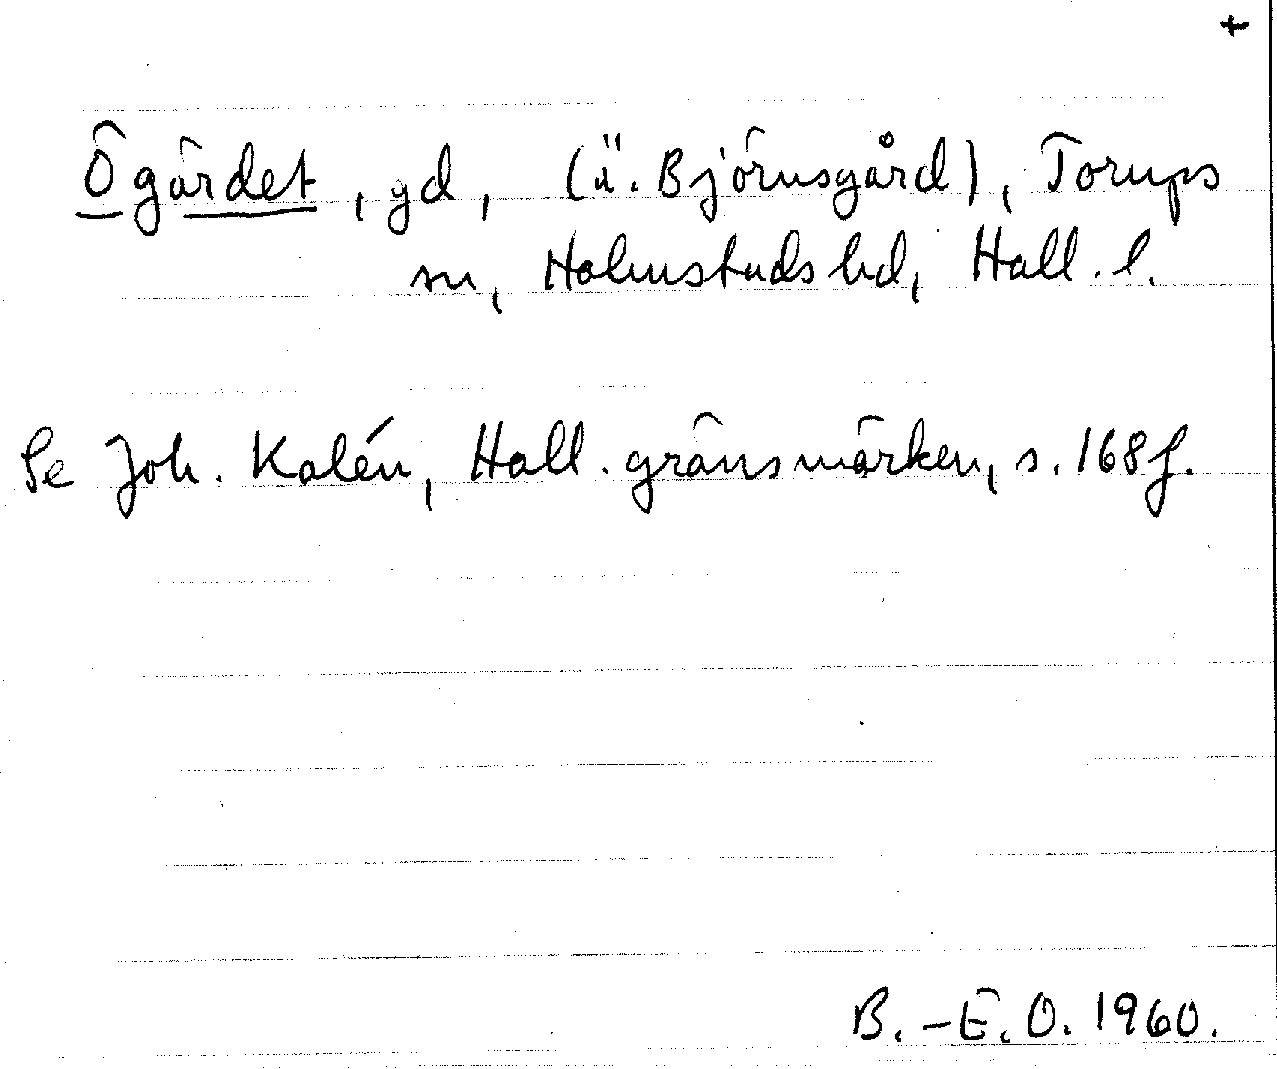 +
Ögärdet, gd, (ä. Björnsgård), Torups
sn, Halmstads hd, Hall. l.
Se Joh. Kalén, Hall. gränsmärken, s. 168 f.
B.-E. O. 1960.